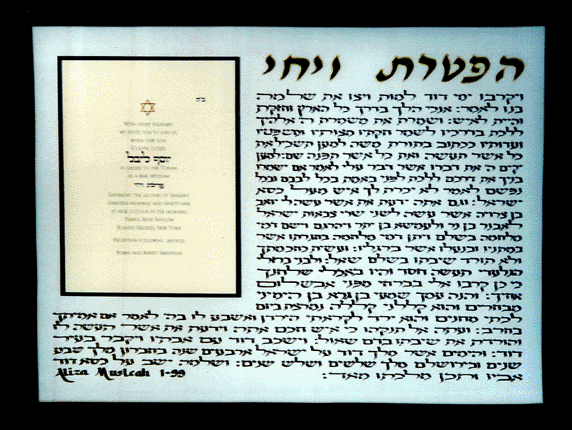 הפטרת ויחי
ב״ה
With great pleasure
we invite you to join us
when our son
יוסף ליבל
is called to the Torah
as a Bar Mitzvah
פרשת ויחי
Saturday, the second of January
nineteen hundred and ninety-nine
at nine o'clock in the morning
Temple Beth Sholom
Roslyn Heights, New York
Reception following services
ויקרבו ימי דוד למות ויצו את שלמה
בנו לאמר: אנכי הלך בדרך כל הארץ וחזקת
והיית לאיש: ושמרת את משמרת ה' אלהיך
ללכת בדרכיו לשמר חקתיו מצותיו ומשפטיו
ועדותיו ככתוב בתורת משה למען תשכיל את
כל אשר תעשה ואת כל אשר תפנה שם: למען
יקים ה' את דברו אשר דבר עלי לאמר אם ישמרו
בניך את דרכם ללכת לפני באמת בכל לבבם ובכל
נפשם לאמר לא יכרת לך איש מעל כסא
ישראל: וגם אתה ידעת את אשר עשה לי יואב
בן צרויה אשר עשה לשני שרי צבאות ישראל
לאבנר בן נר ולעמשא בן יתר ויהרגם וישם דמי
מלחמה בשלם ויתן דמי מלחמה בחגרתו אשר
במתניו ובנעלו אשר ברגליו: ועשית כחכמתך
ולא תורד שיבתו בשלם שאל: ולבני ברזלי
הגלעדי תעשה חסד והיו באכלי שלחנך
כי כן קרבו אלי בברחי מפני אבשלום
אחיך: והנה עמך שמעי בן גרא בן הימיני
מבחרים והוא קללני קללה נמרצת ביום
לכתי מחנים והוא ירד לקראתי הירדן ואשבע לו בה' לאמר אם אמיתך
בחרב: ועתה אל תנקהו כי איש חכם אתה וידעת את אשר תעשה לו
והורדת את שיבתו בדם שאול: וישכב דוד עם אבתיו ויקבר בעיר
דוד: והימים אשר מלך דוד על ישראל ארבעים שנה בחברון מלך שבע
שנים ובירושלם מלך שלשים ושלש שנים: ושלמה ישב על כסא דוד
אביו ותכן מלכתו מאד:
Aliza Musleah 1-99